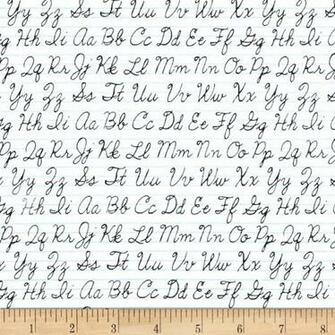 Yy Zz Ss Tt Uu Vv Ww Xx Yy Zz
Gg Hh Ii Aa Bb Cc Dd Ee Ff Gg
Pp Qq Rr Jj Kk Ll Mm Nn Oo Pp
Yy Zz Ss Tt Uu Vv Ww Xx Yy
Gg Hh Ii Aa Bb Cc Dd Ee Ff Gg
Pp Qq Rr Jj Kk Ll Mm Nn Oo Pp
Yy Zz Ss Tt Uu Vv Ww Xx Yy
Gg Hh Ii Aa Bb Cc Dd Ee Ff Gg
Pp Qq Rr Jj Kk Ll Mm Nn Oo Pp
Yy Zz Ss Tt Uu Vv Ww Xx Yy
Gg Hh Ii Aa Bb Cc Dd Ee Ff Gg
1 2 3 4 5 6 7